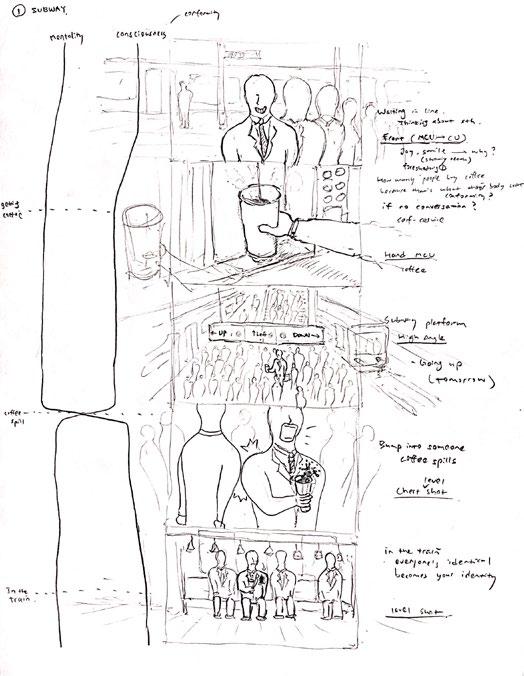 ① SUBWAY.
conformity
mentality
consciousness
Waiting in line.
Thinking about sth.
Front (MCU → CU)
Joy, smile → why?
How many people buy coffee
because that's what everybody
if no conversation?
getting coffee
Hand MCU
coffee
← UP
Down →
Subway platform
High Angle
- Going up
(tomorrow)
coffee spill
Bump into someone
coffee spills
level
Chest shot
In the train
in the train
everyone's identical
becomes your identity
level shot